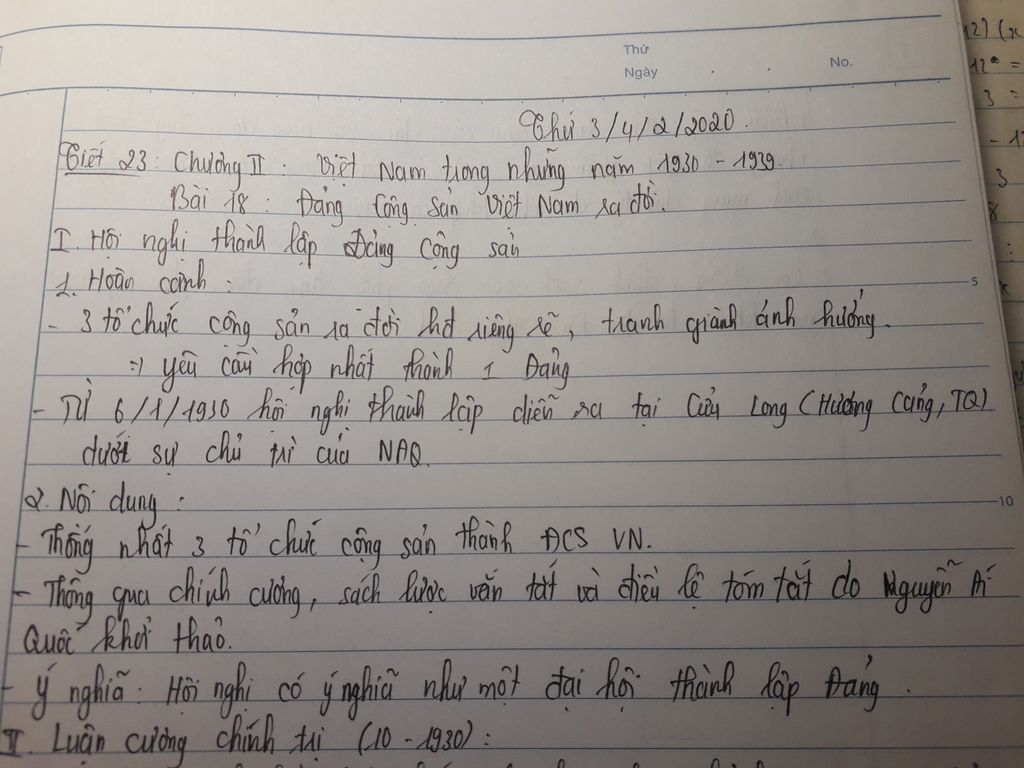 Thứ
Ngày . . No.
Thứ 3/4/2/2020.
Tiết 23: Chương II: Việt Nam trong những năm 1930 - 1939
Bài 18: Đảng Cộng sản Việt Nam ra đời.
I. Hội nghị thành lập Đảng Cộng sản
1. Hoàn cảnh:
- 3 tổ chức cộng sản ra đời hđ riêng rẽ, tranh giành ảnh hưởng.
5
⇒ yêu cầu hợp nhất thành 1 Đảng
- Từ 6/1/1930 hội nghị thành lập diễn ra tại Cửu Long (Hương Cảng, TQ)
dưới sự chủ trì của NAQ.
2. Nội dung:
10
- Thống nhất 3 tổ chức cộng sản thành ĐCS VN.
- Thông qua chính cương, sách lược vắn tắt và điều lệ tóm tắt do Nguyễn Ái
Quốc khởi thảo.
- Ý nghĩa: Hội nghị có ý nghĩa như một đại hội thành lập Đảng.
II. Luận cương chính trị (10 - 1930):